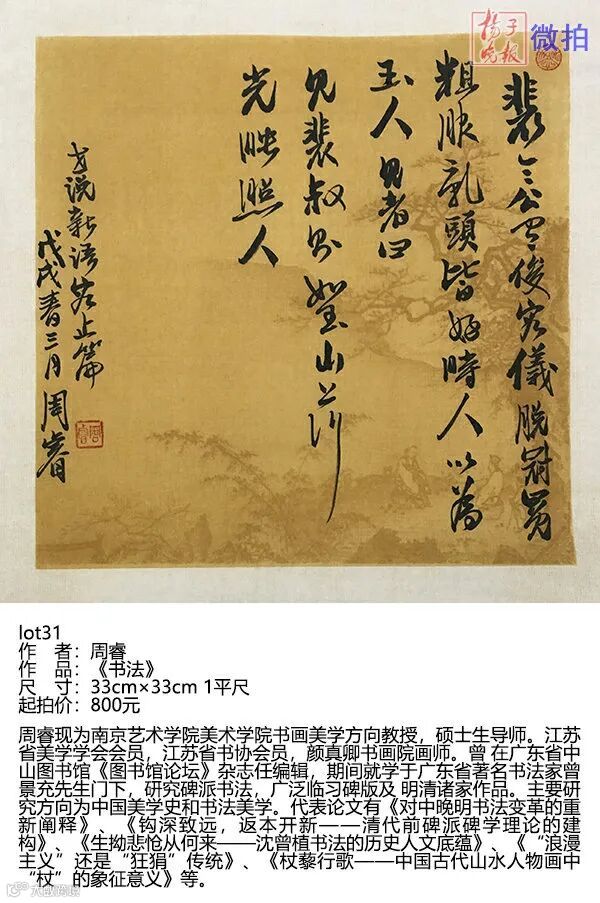 扬子晚报 微拍
裴令公有俊容儀脫冠冕
粗服亂頭皆好時人以為
玉人見者曰
見裴叔則如玉山上行
光映照人
世說新語容止篇
戊戌春三月周睿
lot31
作 者：周睿
作 品：《书法》
尺 寸：33cm×33cm 1平尺
起拍价：800元
周睿现为南京艺术学院美术学院书画美学方向教授，硕士生导师。江苏
省美学学会会员，江苏省书协会员，颜真卿书画院画师。曾 在广东省中
山图书馆《图书馆论坛》杂志任编辑，期间就学于广东省著名书法家曾
景充先生门下，研究碑派书法，广泛临习碑版及 明清诸家作品。主要研
究方向为中国美学史和书法美学。代表论文有《对中晚明书法变革的重
新阐释》、《钩深致远，返本开新——清代前碑派碑学理论的建
构》、《生拗悲怆从何来——沈曾植书法的历史人文底蕴》、《“浪漫
主义”还是“狂狷”传统》、《杖藜行歌——中国古代山水人物画中
“杖”的象征意义》等。